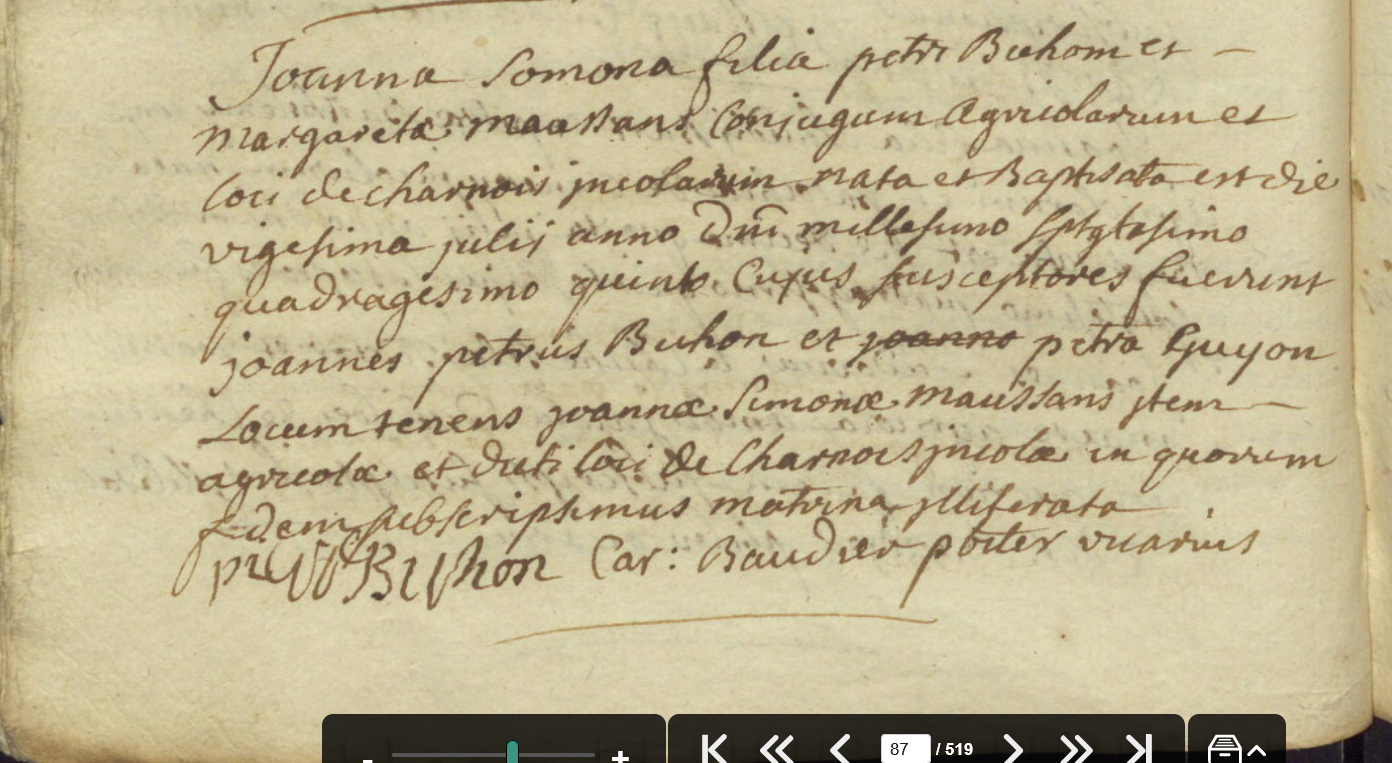 Joanna Somona filia petri Buhom et –
margareta maussans Conjugum agricolarum et
loci de charnois jncolarum nata et Baptisata est die
vigesima julij anno Dni millesimo septgtesimo
quadragesimo quinto Cujus susceptores fuerunt
joannes petrus Buhon et joanno petra Guyon
Locum tenens joannæ Simonæ maussans jtem –
agricolæ et dicti loci de Charnois jncolæ in quorum
fidem subscripsimus matrina jlliterata
Buhon Car: Baudier pbter vicarius
- + 87 / 519